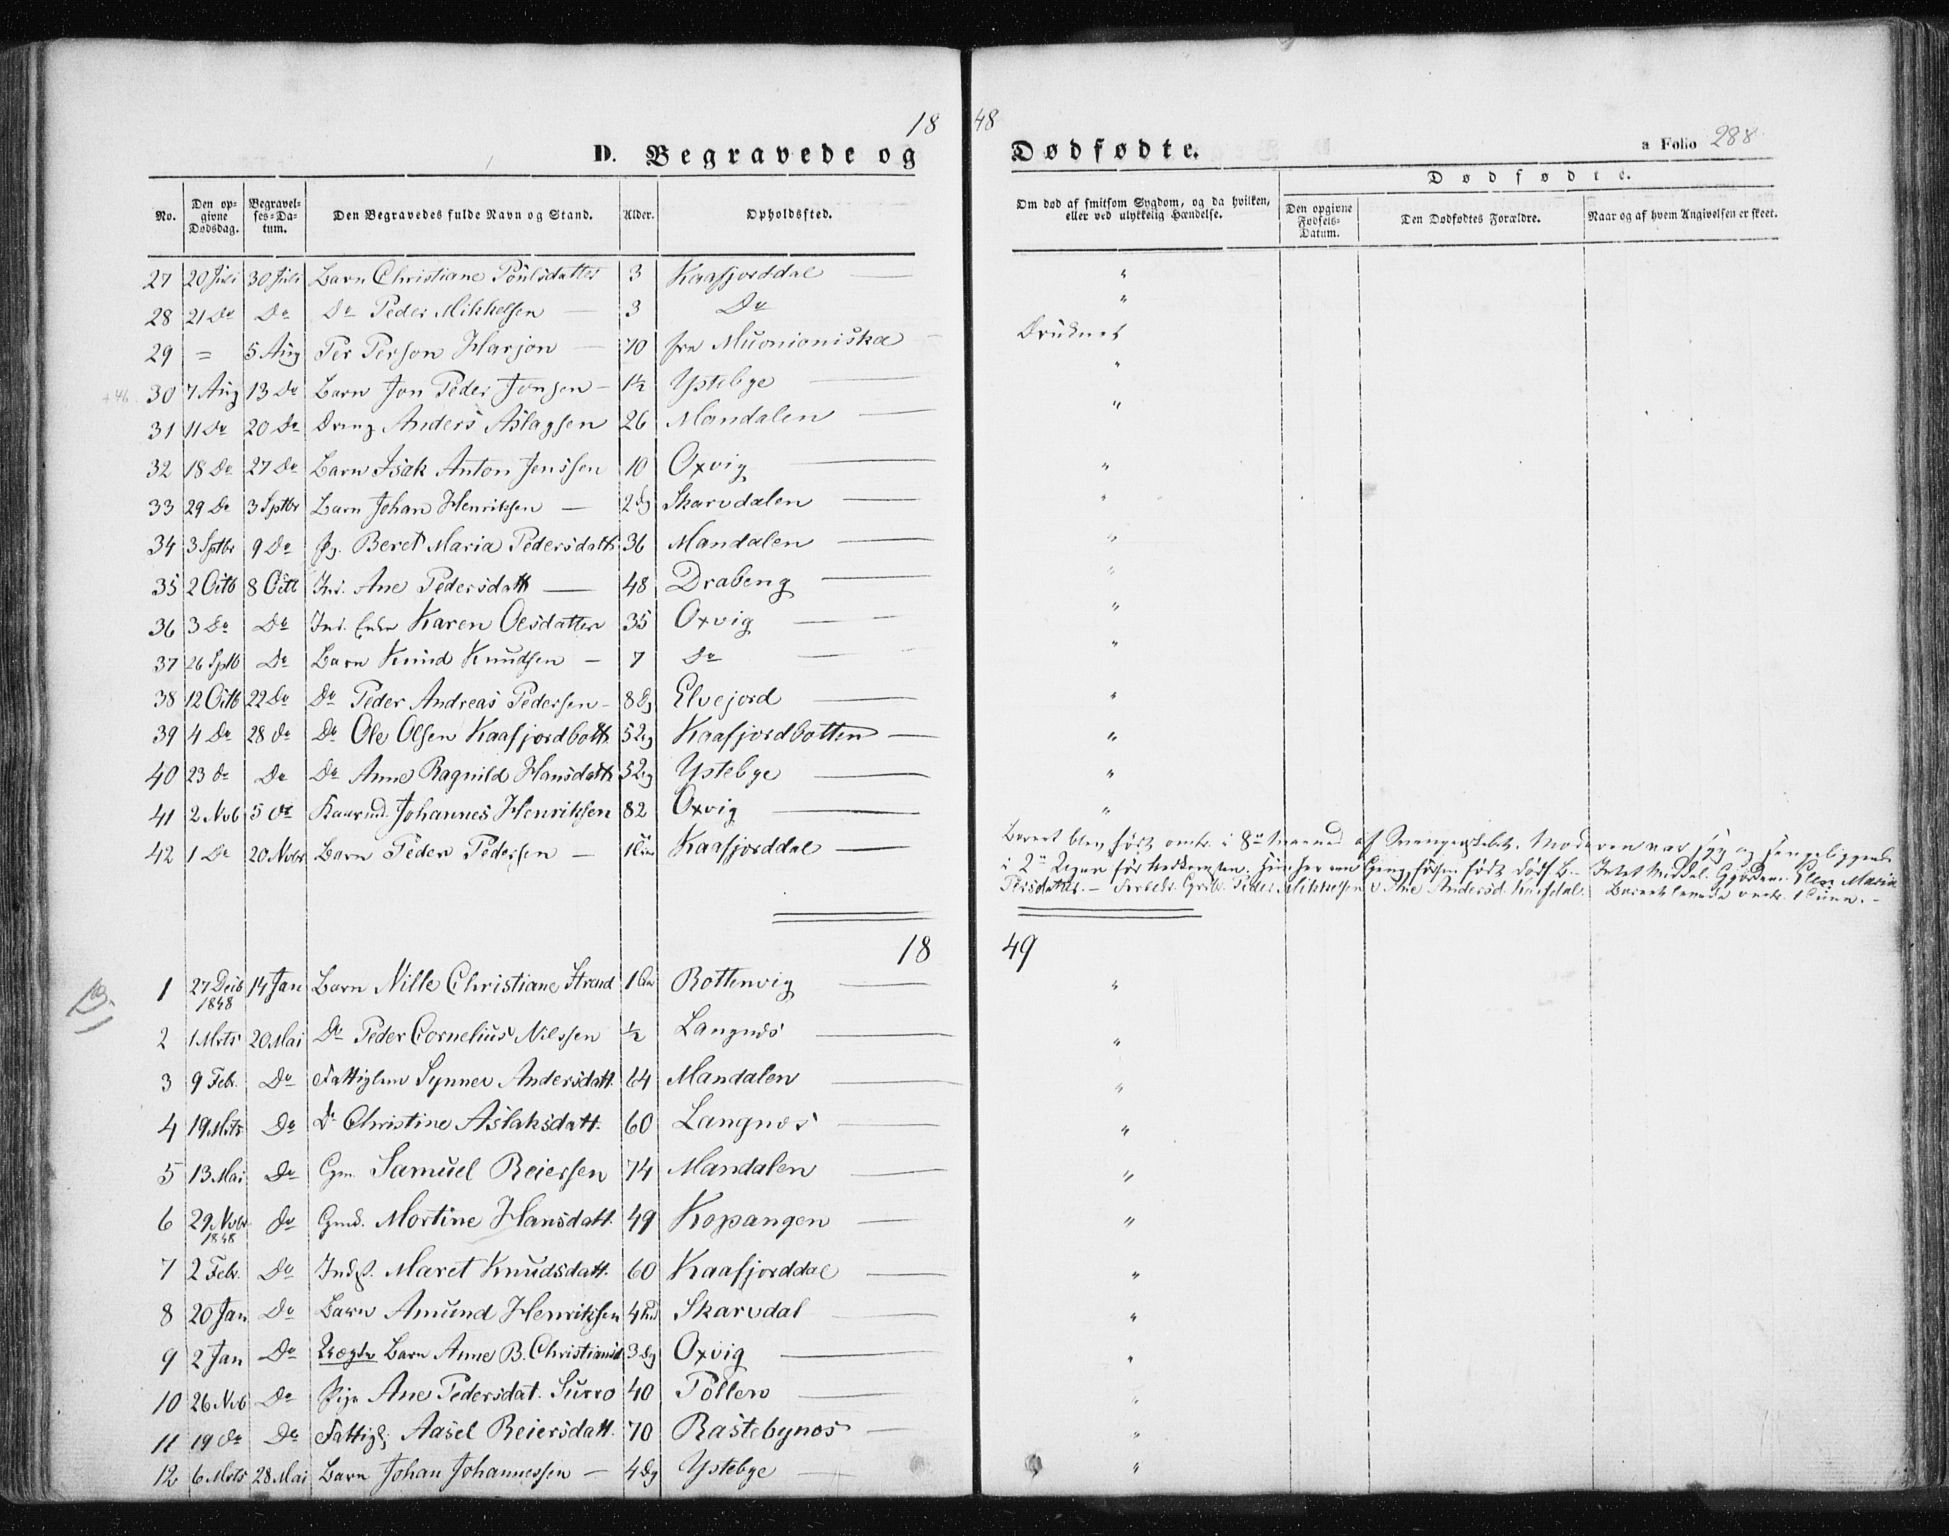 18 48
D. Begravede og Dødfødte. a Folio 288
No. Den opgivne Dødsdag. Begravelses-Datum. Den Begravedes fulde Navn og Stand. Alder. Opholdssted. Om død af smitsom Sygdom, og da hvilken, eller ved ulykkelig Hændelse. Dødfødte. Den opgivne Fødsels-Datum. Den Dødfødtes Forældre. Naar og af hvem Angivelsen er skeet.
27 20 Juli 30 Juli Barn Christiane Poulsdatter 3 Kaafjorddal "
28 21 Do Do Do Peder Mikkelsen 3 Do "
29 = 5 Aug Per Person Harjon 70 fra Muonioniska Druknet
30 7 Aug 13 Do Barn Jon Peder Jonsen 1½ Ystebye "
31 11 Do 20 Do Dreng Anders Aslagsen 26 Mandalen "
32 18 Do 27 Do Barn Isak Anton Jenssen 10 Oxvig "
33 29 Do 3 Sptbr Barn Johan Henriksen 2 Dg Skarvdalen "
34 3 Sptbr 9 Do Pg. Beret Maria Pedersdatt 36 Mandalen "
35 2 Octb 8 Octb Ind. Ane Pedersdatt 48 Drabeng "
36 3 Do Do Ind. Enke Karen Olsdatter 35 Oxvig "
37 26 Sptb Do Barn Knud Knudsen 7 Do "
38 12 Octb 22 Do Do Peder Andreas Pedersen 8 Dg Elvejord "
39 4 Do 28 do Do Ole Olsen Kaafjordbott. Kaafjordbotten "
40 23 do Do Do Anne Ragnild Hansdatt Ystebye "
41 2 Nvb 5 do Johannes Henriksen 82 Oxvig "
42 1 Do 20 Nvbr Barn Peder Pedersen Kaafjorddal Barnet blev født omtr. i 8de Maaned af Svangerskabet. Moderen var syg og sengeliggende
Barnet levede omtr. 1 Time.
18 49
1 27 Decb 1848 14 Jan Barn Nille Christiane Strand Rottenvig "
2 1 Mrts 20 Mai Do Peder Cornelius Nilssen ½ Langnes "
3 9 Feb. Do Fattiglem Synnev Andersdatt. 64 Mandalen "
4 19 Mrts Do Do Christine Aslaksdatt. 60 Langnes "
5 13 Mai Do Gm. Samuel Reiersen 74 Mandalen "
6 29 Nvbr 1848 Do Gmd. Mortine Hansdatt. 49 Kopangen "
7 2 Feb. Do Indst. Maret Knudsdatt. 60 Kaafjorddal "
8 20 Jan Do Barn Amund Henriksen Skarvdal "
9 2 Jan Do Uægte Barn Anne B. Christiansd 3 Dg Oxvig "
10 26 Nvb Do Pige Ane Pedersdat. Surro 40 Pollen "
11 19 do Do Fattigl. Aasel Reiersdatt. 70 Rastebynes "
12 6 Mrts 28 Mai Barn Johan Johannessen 4 Dg Ystebye "